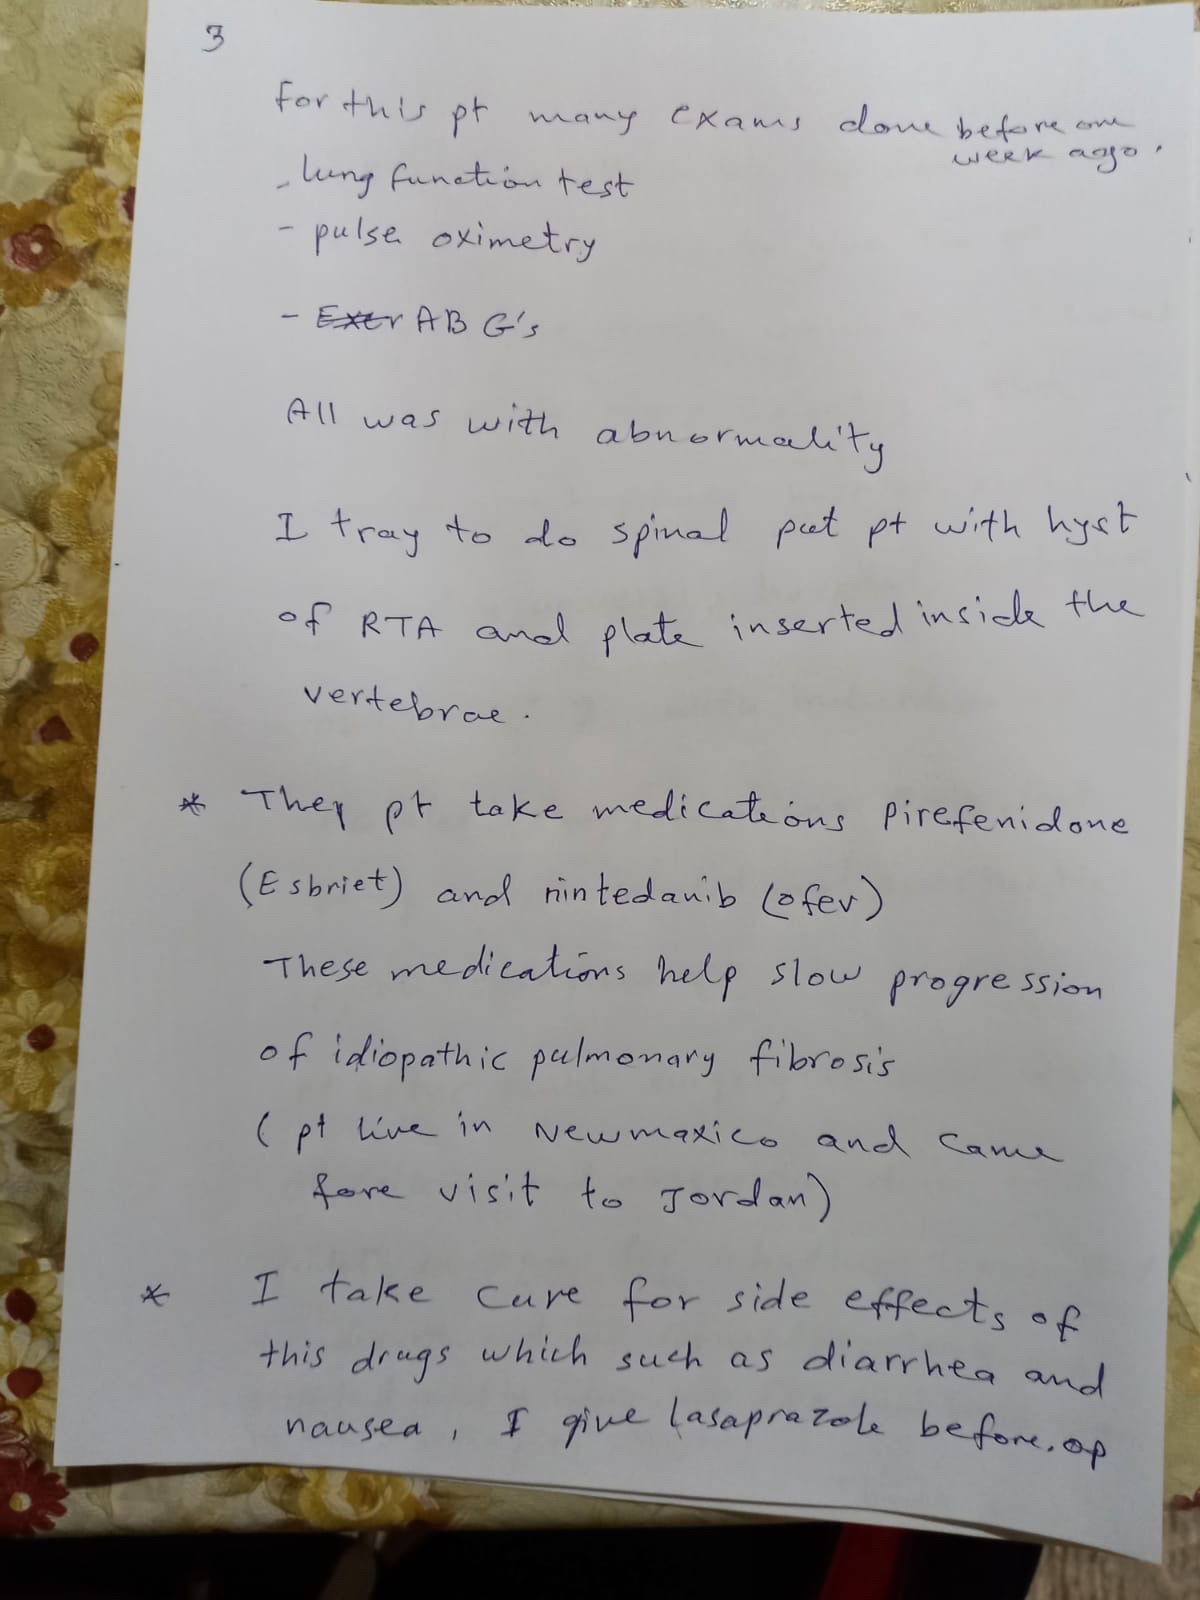 3
for this pt many exams done before one
week ago.
- lung function test
- pulse oximetry
- Exer ABG's
All was with abnormality
I tray to do spinal put pt with hyst
of RTA and plate inserted inside the
vertebrae.
* They pt take medications Pirefenidone
(Esbriet) and nintedanib (ofev)
These medications help slow progression
of idiopathic pulmonary fibrosis
( pt live in Newmaxico and came
fore visit to Jordan)
* I take cure for side effects of
this drugs which such as diarrhea and
nausea, I give lasaprazole before.op